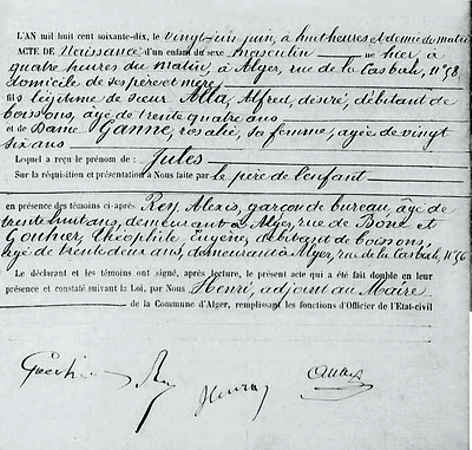 L'AN mil huit cent soixante-dix, le vingt-six juin, à huit heures et demie du matin
ACTE DE Naissance d'un enfant du sexe masculin né hier, à
quatre heures du matin, à Alger, rue de la Casbah, N° 58,
domicile de ses père et mère
fils légitime de sieur Alla, Alfred, désiré, débitant de
boissons, âgé de trente quatre ans
et de Dame Ganne, rosalie, sa femme, agée de vingt
six ans
Lequel a reçu le prénom de : Jules
Sur la réquisition et présentation à Nous faite par le père de l'enfant
en présence des témoins ci-après Rey, Alexis, garçon de bureau, âgé de
trente huit ans, demeurant à Alger, rue de Bône et
Gouhier, théophile Eugène, débitant de boissons,
agé de trente deux ans, demeurant à Alger, rue de la Casbah, N° 56
Le déclarant et les témoins ont signé, après lecture, le présent acte qui a été fait double en leur
présence et constaté suivant la Loi, par Nous Henri, adjoint au Maire
de la Commune d'Alger, remplissant les fonctions d'Officier de l'Etat-civil
Rey